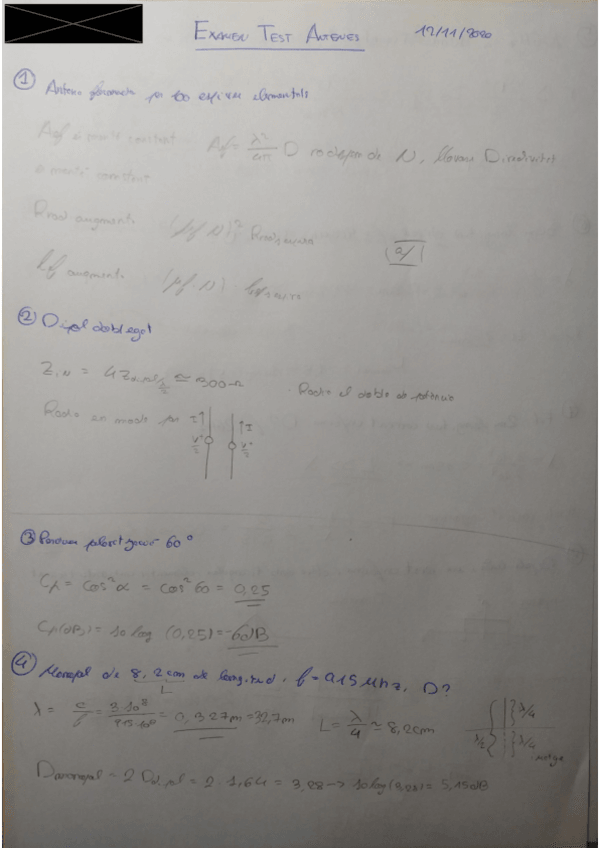 EXAMEN TEST ANTENES 12/11/2020
① Antena formada per 100 espires elementals
Aef es manté constant Aef = λ²/4π D no depen de N, llavors Directivitat
es manté constant
Rrad augmenta (μef N)² Rrad
a)
lef augmenta (μef N)
② Dipol doblegat
ZIN = 4Z ≃ 300Ω · Radia el doble de potencia
Radia en mode par I↑ ↑I
③ Perdues polaritzacio 60°
Cp = cos²α = cos²60 = 0,25
Cp(dB) = 10log (0,25) = -6dB
④ Monopol de 8,2cm de longitud, f = 915 MHz, D?
L
λ = c/f = 3·10⁸/915·10⁶ = 0,327m = 32,7m L = λ/4 ≃ 8,2cm
λ/2 λ/4 λ/4 imatge
Dmonopol = 2 Ddipol = 2 · 1,64 = 3,28 -> 10log(3,28) = 5,15dB